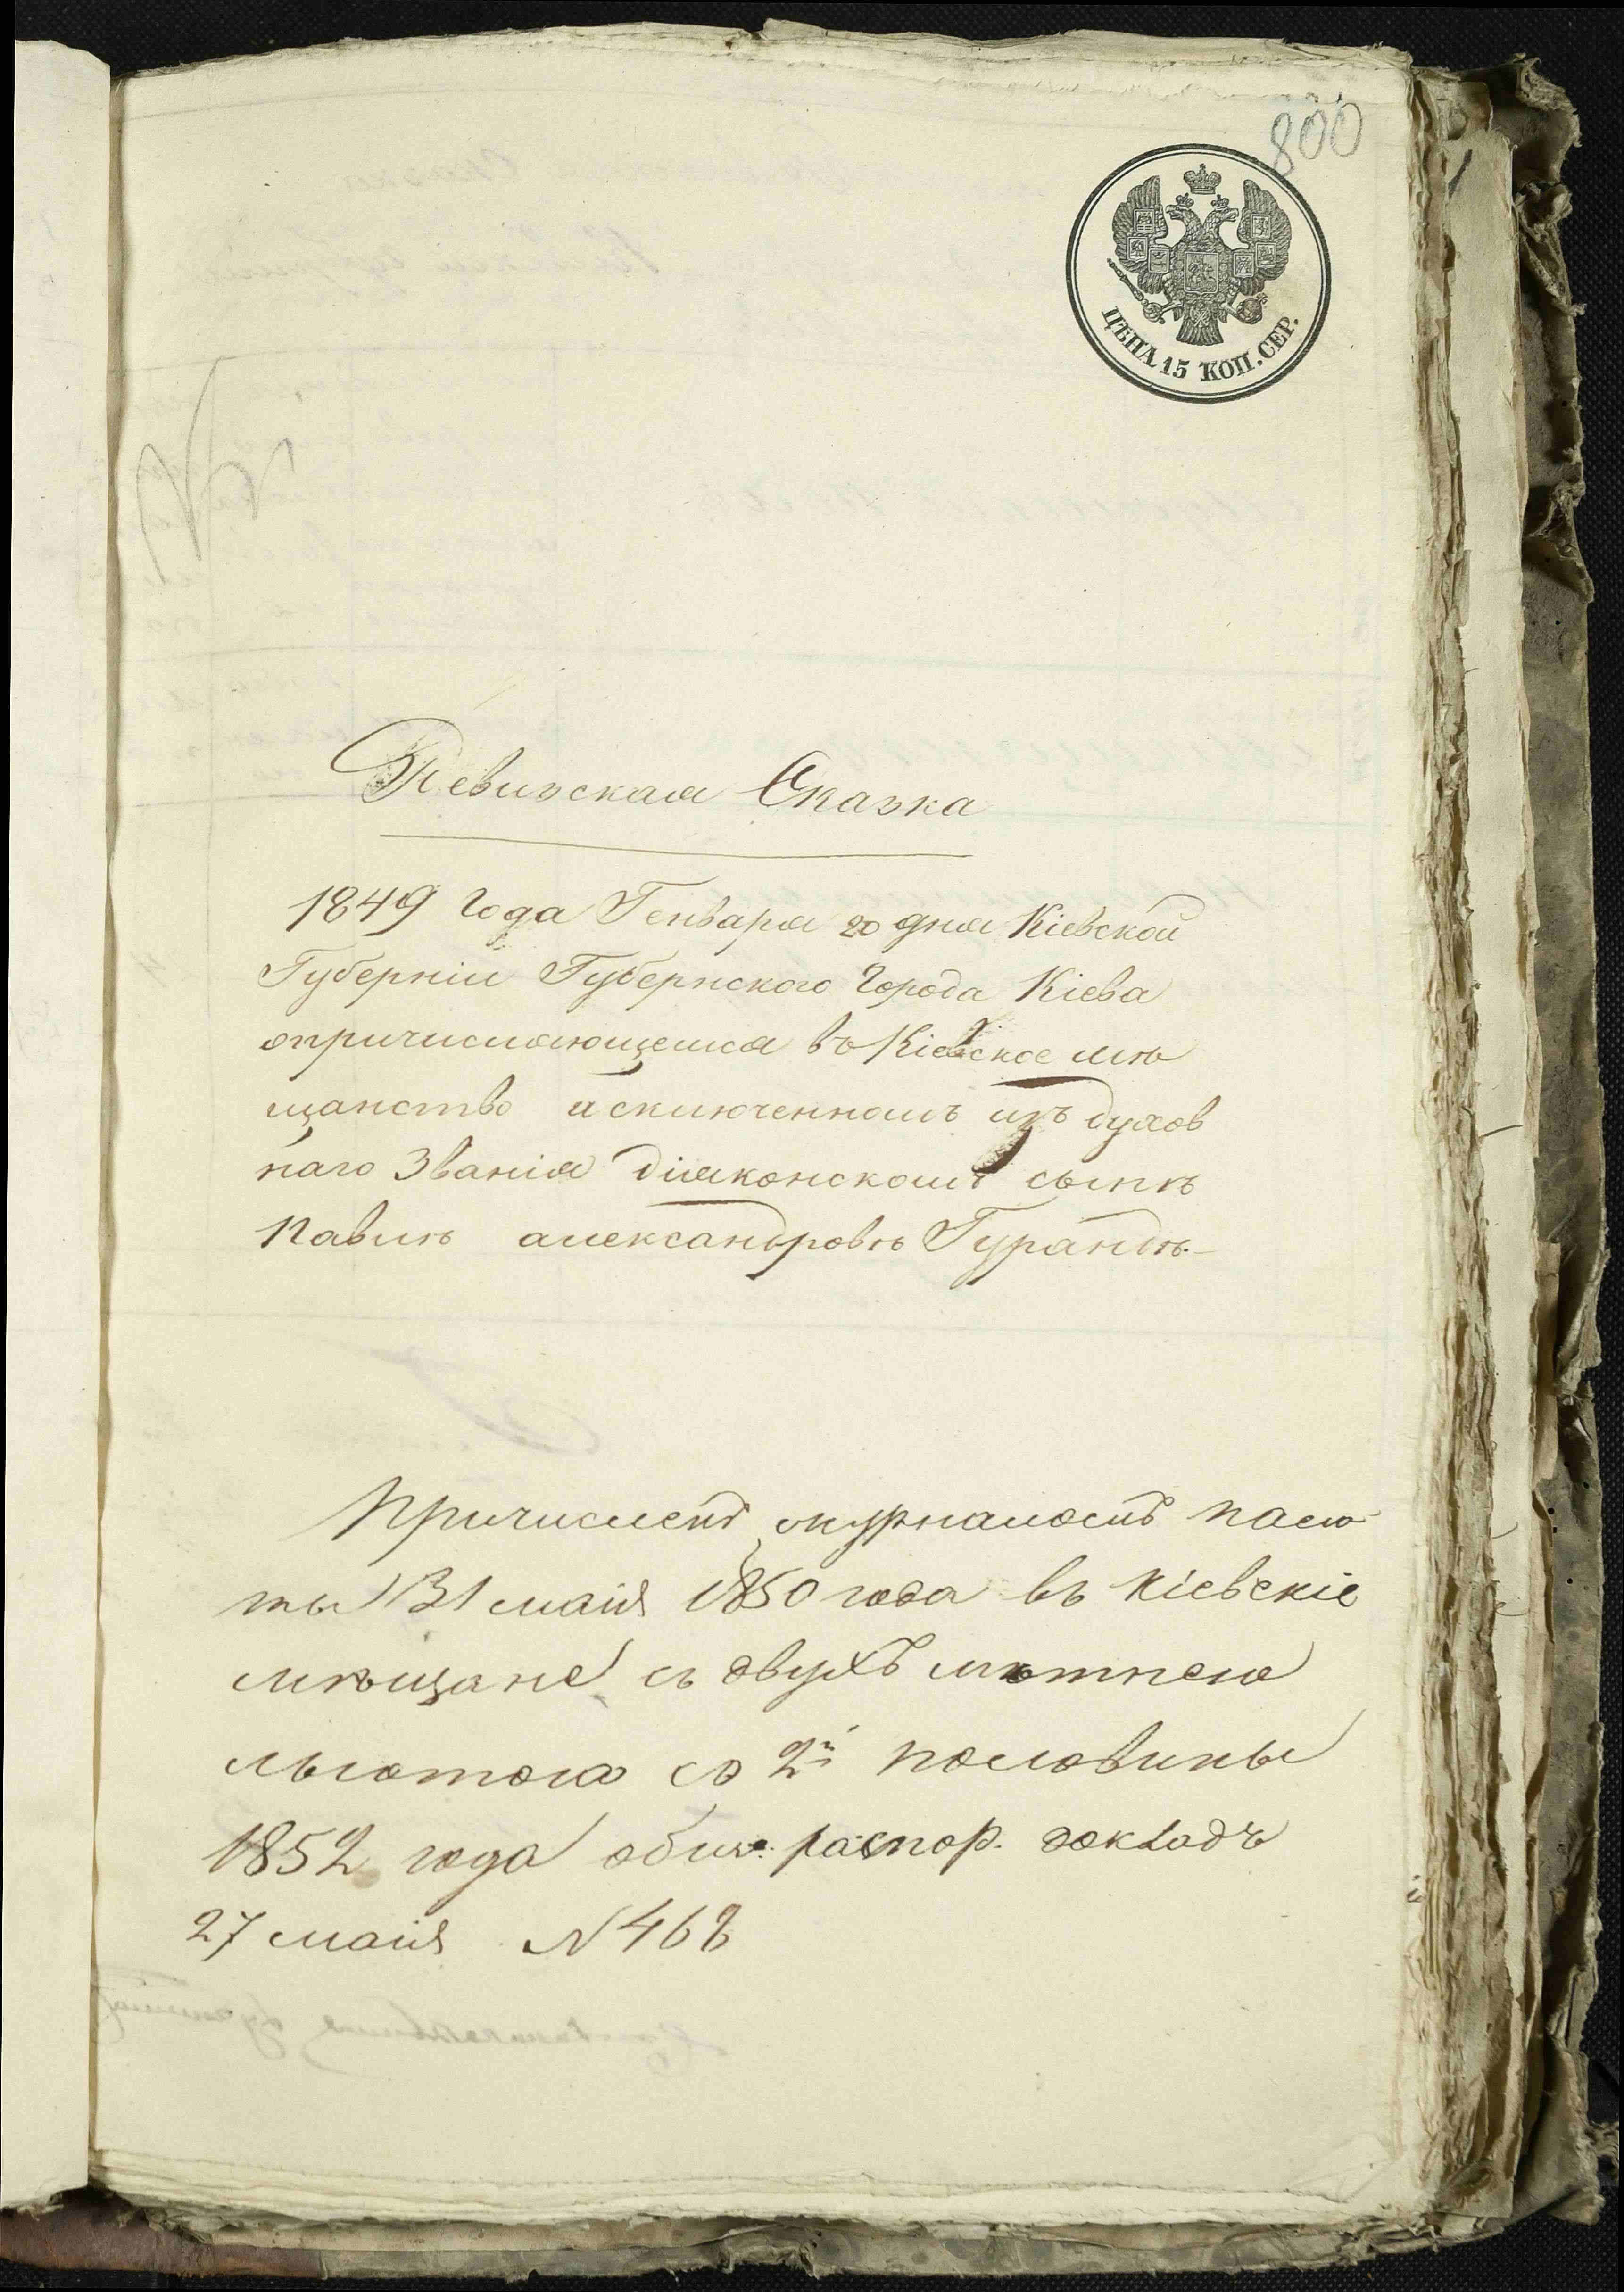 800
ЦѢНА 15 КОП. СЕР.
Ревизская Сказка
1849 Года Генваря 20 дня Кіевской
Губерніи Губернского Города Кіева
опричисляющемся въ Кіевское мѣ
щанство исключенномъ изъ духов
наго Званія діяконскомъ сынѣ
Павлѣ александровѣ Гурандѣ.
Причисленъ журналомъ пала
ты 31 маія 1850 года въ Кіевскіе
мѣщане съ двухъ лѣтнею
льготою со 2й половины
1852 года общ. распор. докладъ
27 маія N 468